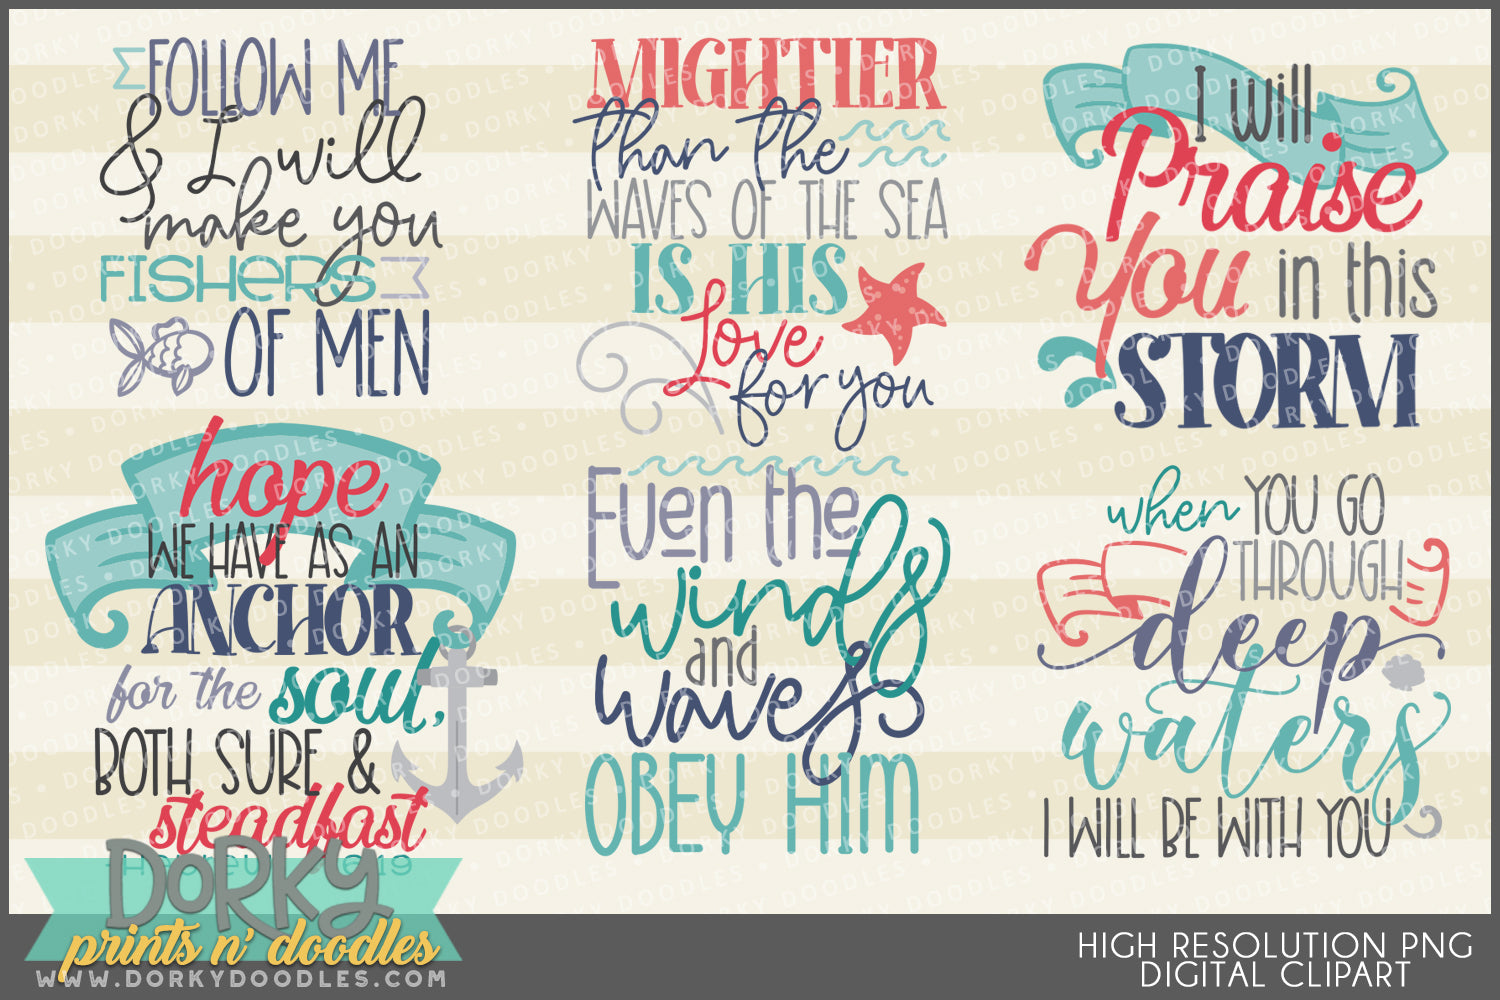 FOLLOW ME
& I will
make you
FISHERS
OF MEN
MIGHTIER
than the
WAVES OF THE SEA
IS HIS
Love
for you
I will
Praise
You in this
STORM
hope
WE HAVE AS AN
ANCHOR
for the soul,
BOTH SURE &
steadfast
Even the
winds
and
waves
OBEY HIM
when YOU GO
THROUGH
deep
waters
I WILL BE WITH YOU
DORKY
prints n' doodles
WWW.DORKYDOODLES.COM
HIGH RESOLUTION PNG
DIGITAL CLIPART